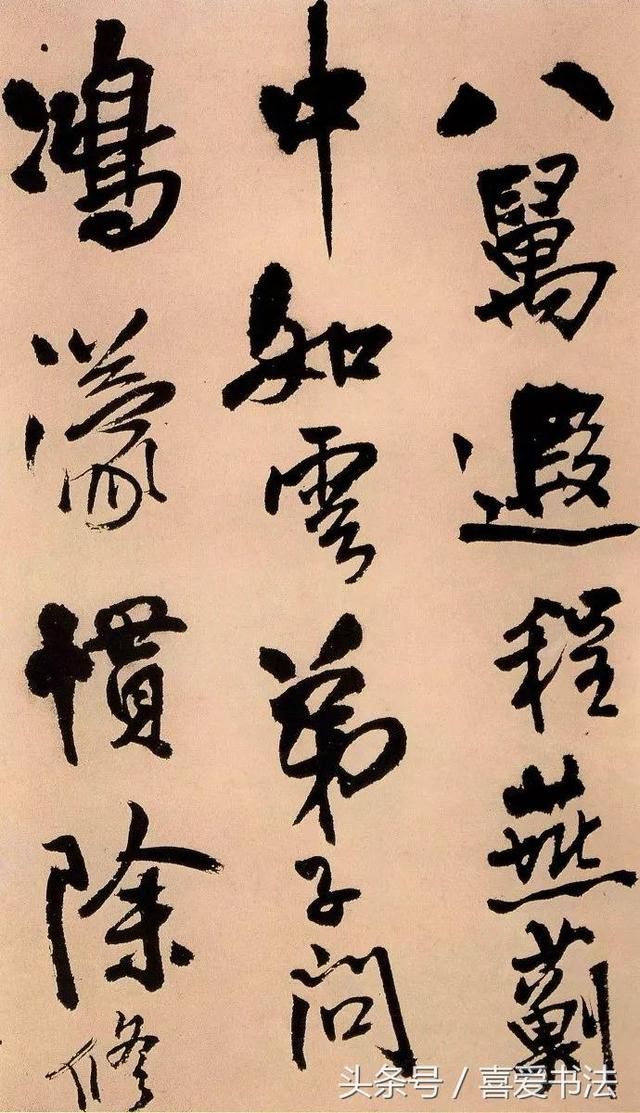 八萬遐程燕薊
中如雲弟子問
鴻濛慣除修
头条号 / 喜爱书法